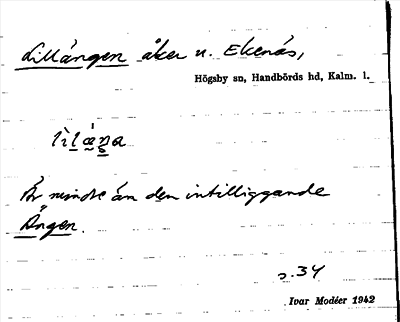 Lillängen åker u. Ekenäs,
Högsby sn, Handbörds hd, Kalm. l.
Är mindre än den intilliggande
Ängen.
s. 34
Ivar Modéer 1942